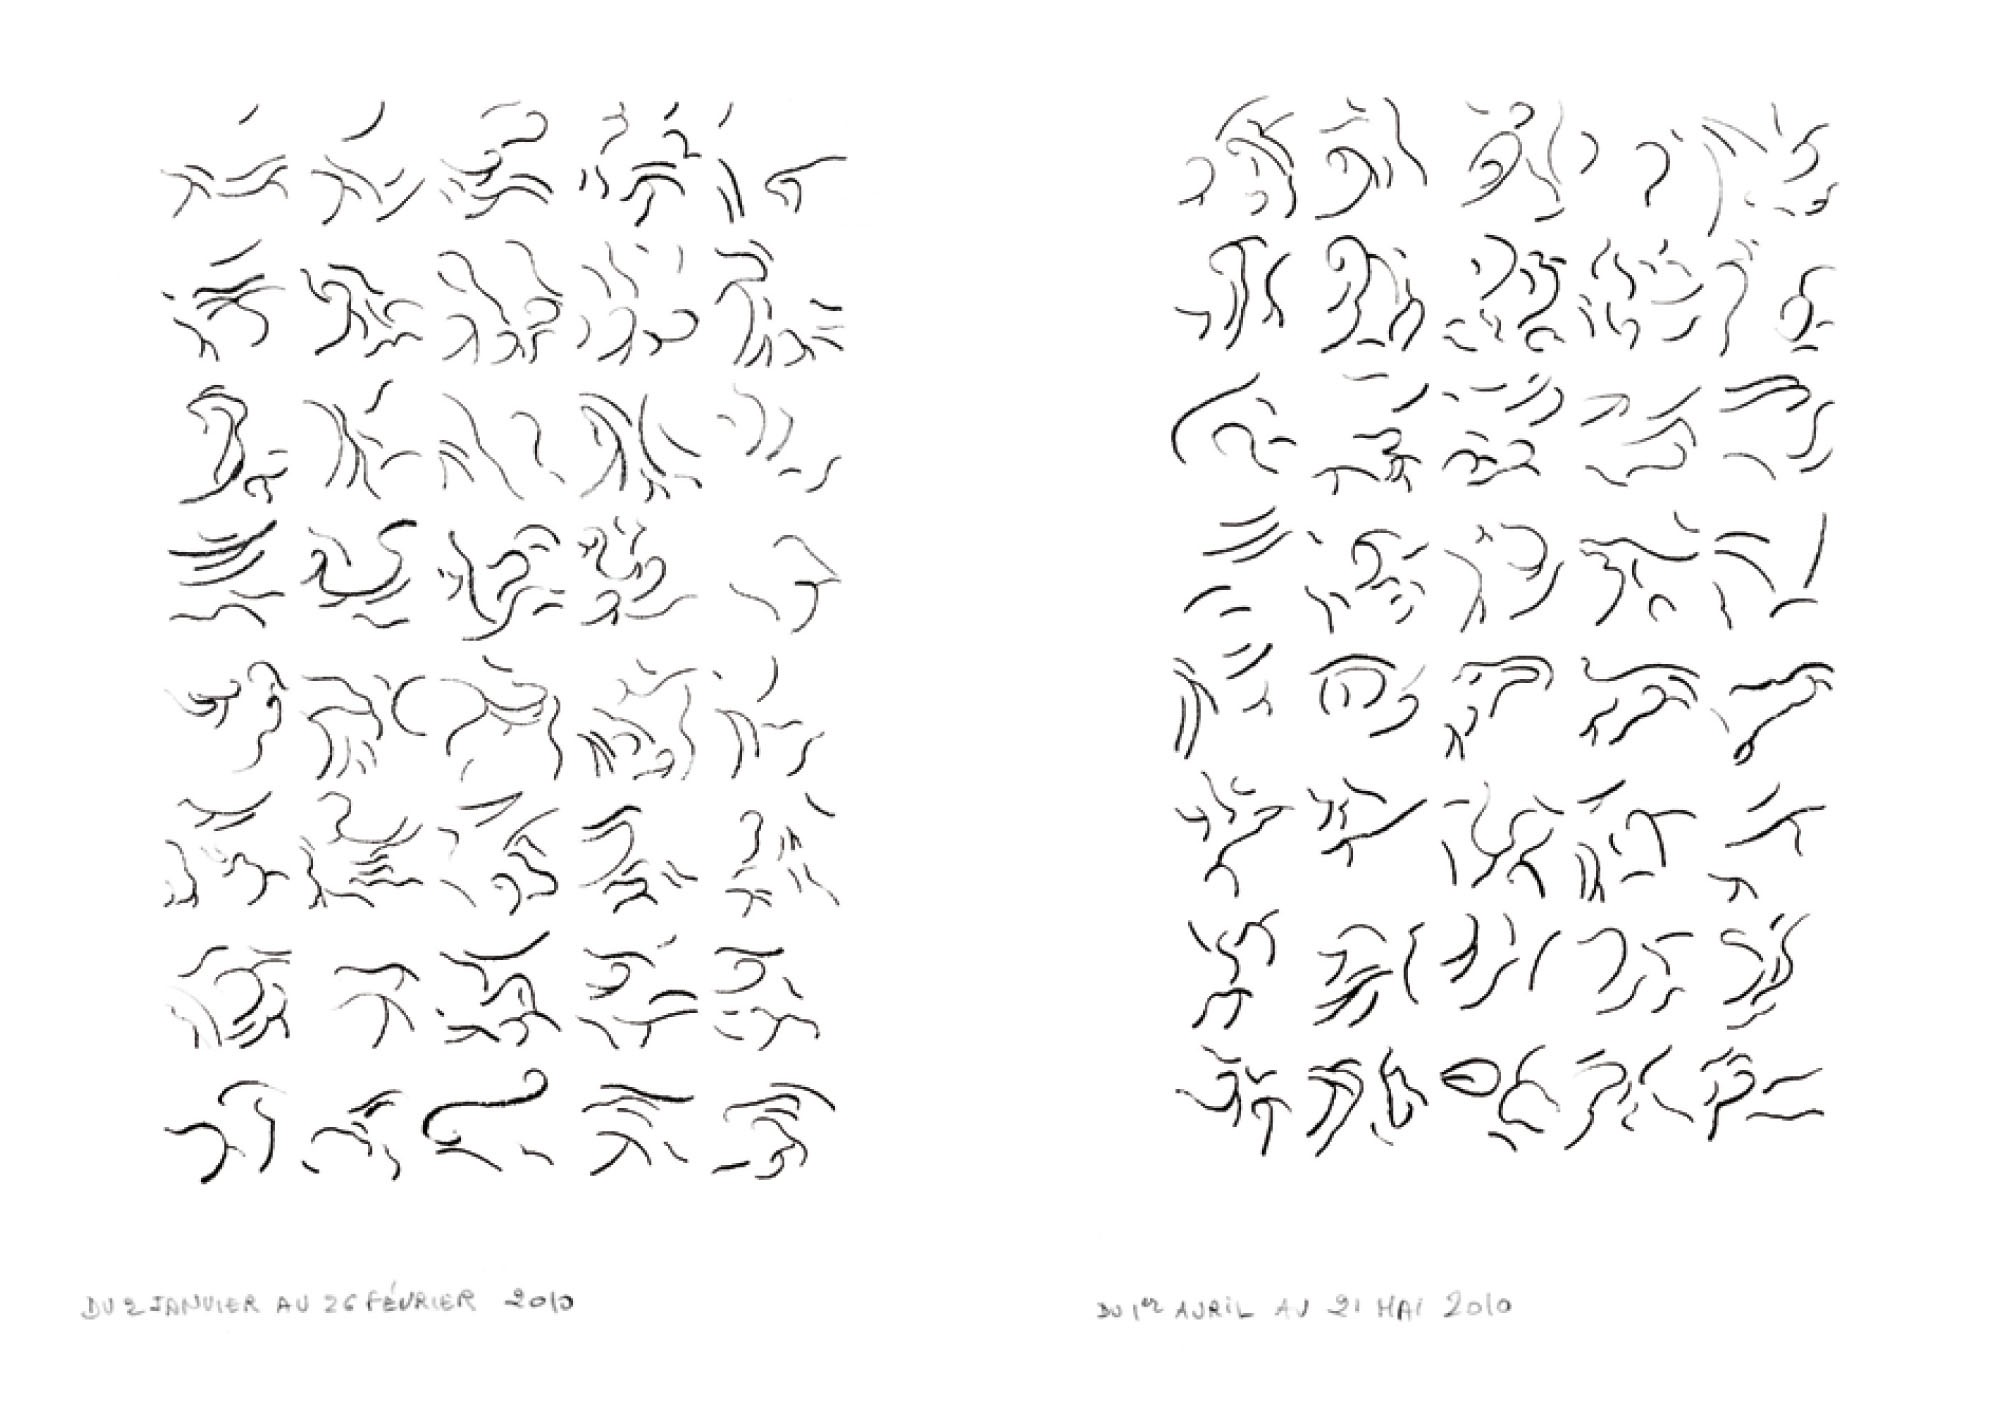 DU 2 JANVIER AU 26 FÉVRIER 2010
DU 1er AVRIL AU 21 MAI 2010